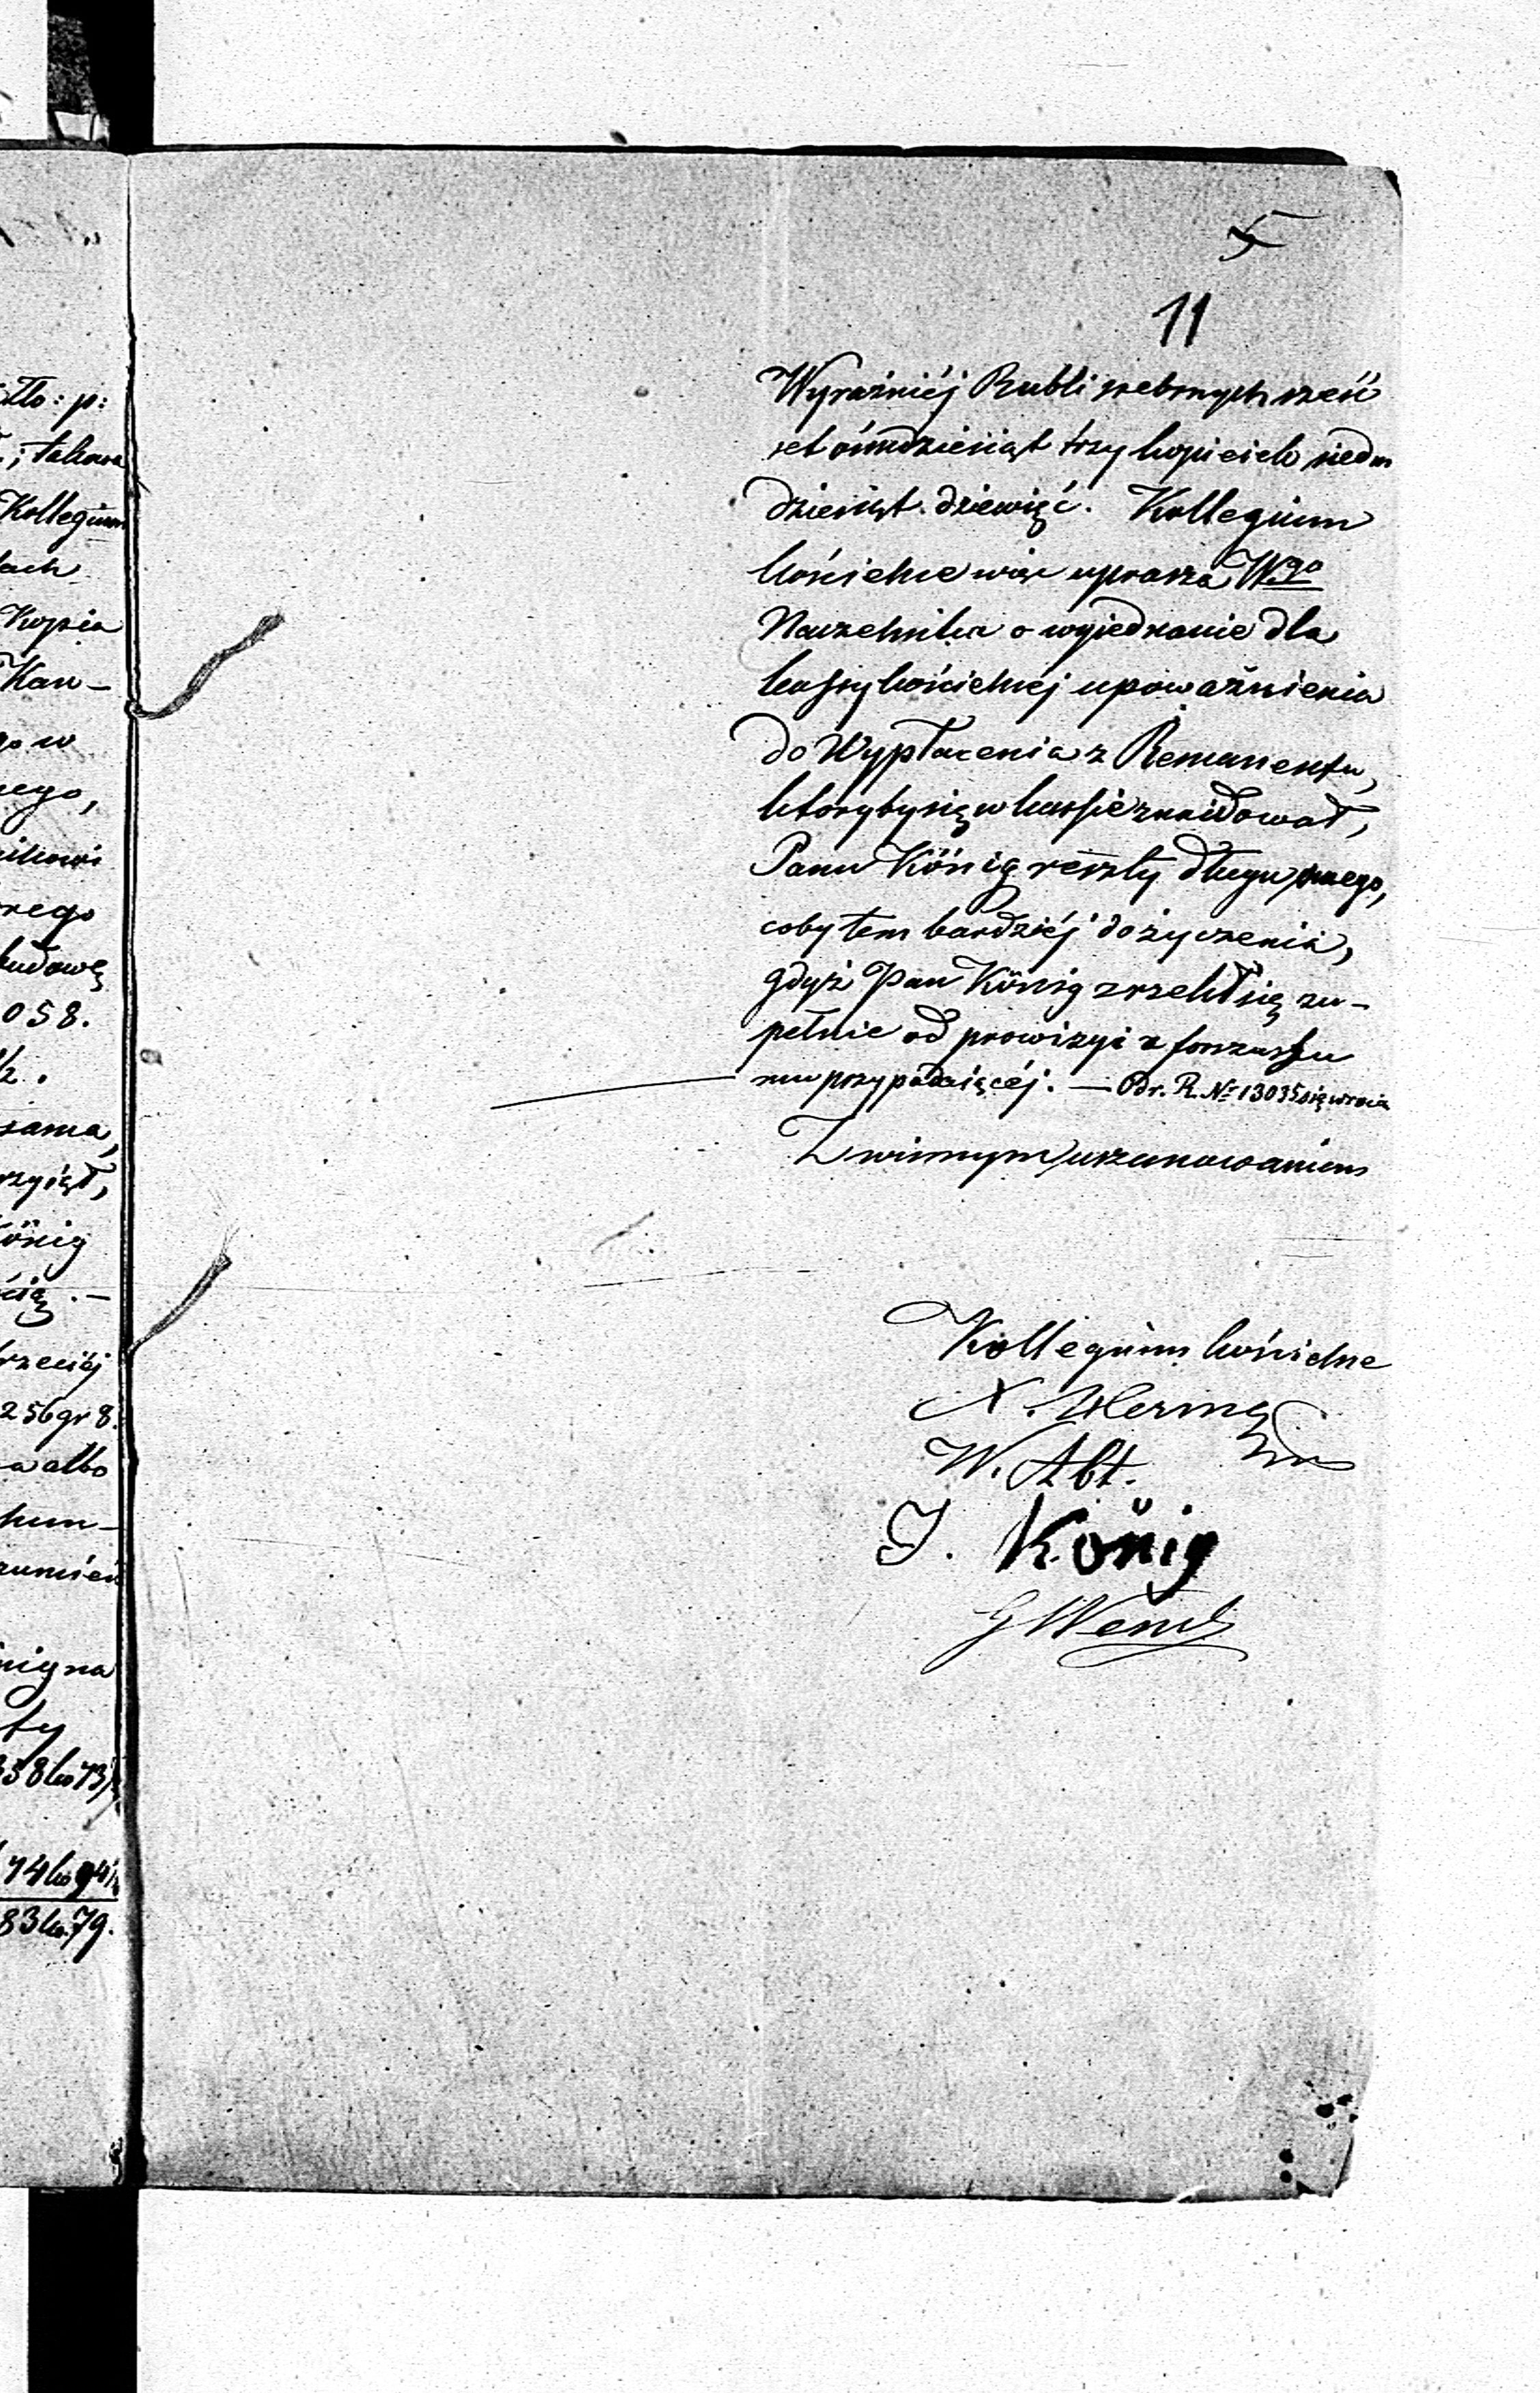 5
11
Wyraźniéj Rubli srebrnych sześć
set ósmdziesiąt trzy kopieiek siedm
dziesiąt dziewięć. Kollegium
kościelne więc uprasza Wgo
Naczelnika o wyjednanie dla
kassy kościelnéj upoważnienia
do Wypłacenia z Remanentu,
któryby się w kassie znaidował,
Panu König reszty długu
coby tem bardziéj do życzenia,
gdyż Pan König zrzekł się zu-
pełnie od prowizyi z forszussu
mu przypadaiącéj. — Odr. R. Nr 13035 się wraca
Z winnym uszanowaniem
Kollegium kościelne
W. Abt.
J. König
tło: p:
; takowa
Kollegium
ach
Kopia
Kan-
go w
nego,
nikowi
rego
budowę
058.
1/2.
sama,
rzyiął,
König
cią. —
trzeciéj
256 gr 8.
a albo
zumień
nig na
ty
358 ko 73
74 ko 94 1/2
83 ko. 79.